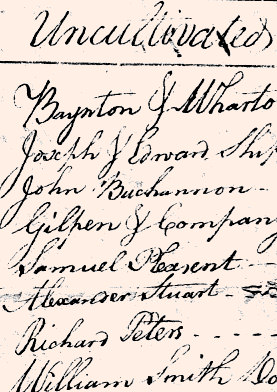 Uncultivated
Baynton & Wharto
Joseph & Edward Ship
John Buchannon -
Gilpen & Company
Samuel Pleasent - -
Alexander Stuart -
Richard Peters - - - -
William Smith